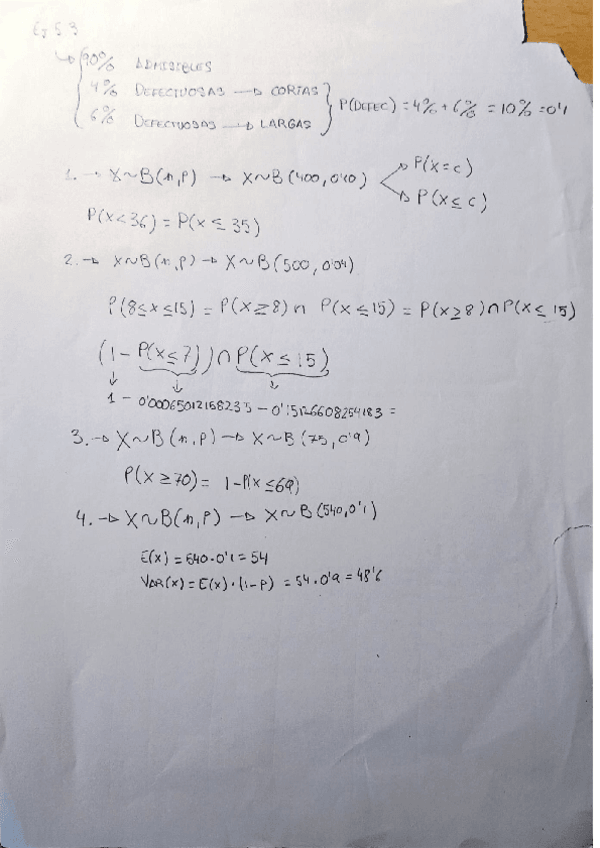 Ej 5.3
90% ADMISIBLES
4% DEFECTUOSAS → CORTAS
6% DEFECTUOSAS → LARGAS
P(DEFEC) = 4% + 6% = 10% = 0'1
1. → X~B(n,p) → X~B(400, 0'10)
P(x=c)
P(x≤c)
P(x<36) = P(x ≤ 35)
2. → X~B(n,p) → X~B(500, 0'04)
P(8≤x≤15) = P(x≥8) ∩ P(x≤15) = P(x≥8) ∩ P(x≤15)
(1 - P(x≤7)) ∩ P(x≤15)
3. → X~B(n,p) → X~B(75, 0'9)
P(x≥70) = 1-P(x≤69)
4. → X~B(n,p) → X~B(540, 0'1)
E(x) = 540·0'1 = 54
VAR(x) = E(x)·(1-p) = 54·0'9 = 48'6